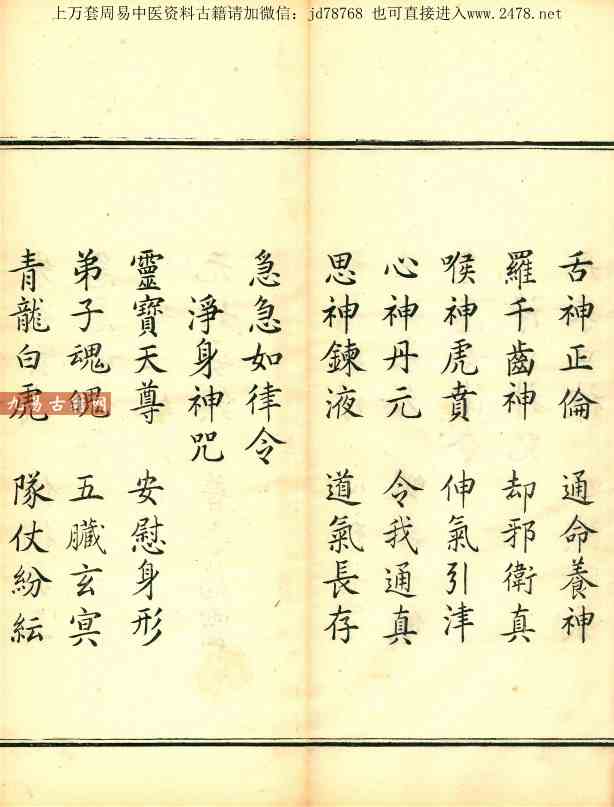 上万套周易中医资料古籍请加微信：jd78768 也可直接进入www.2478.net
舌神正倫 通命養神
羅千齒神 却邪衛真
喉神虎賁 伸氣引津
心神丹元 令我通真
思神鍊液 道氣長存
急急如律令
淨身神咒
靈寶天尊 安慰身形
弟子魂魄 五臟玄冥
青龍白虎 隊仗紛紜
九易古籍网